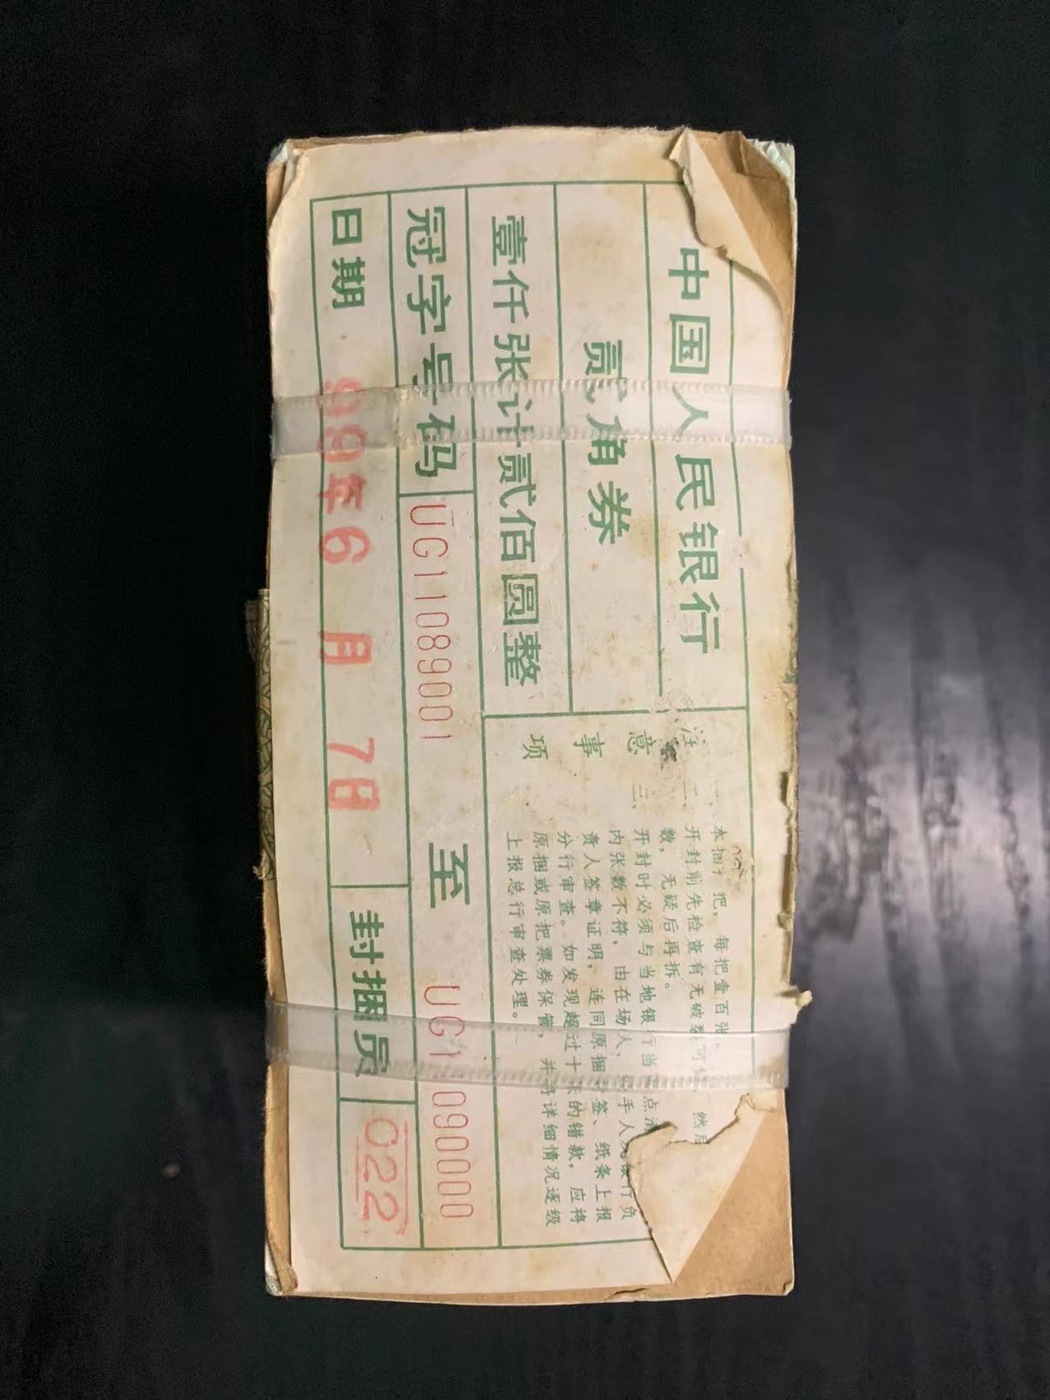 中国人民银行
贰角券
壹仟张计贰佰圆整
冠字号码 UG11089001 至 UG1 090000
日期 99年6月7日 封捆员 022
注意事项
一、本捆 把，每把壹百张
二、开封前先检查有无破裂可 然后
数，无疑后再拆。
三、开封时必须与当地银行当 点清
内张数不符，由在场人、 手人及 行负
责人签章证明，连同原捆 签、纸条上报
分行审查。如发现超过十 的错款，应将
原捆或原把票券保管，并 详细情况逐级
上报总行审查处理。